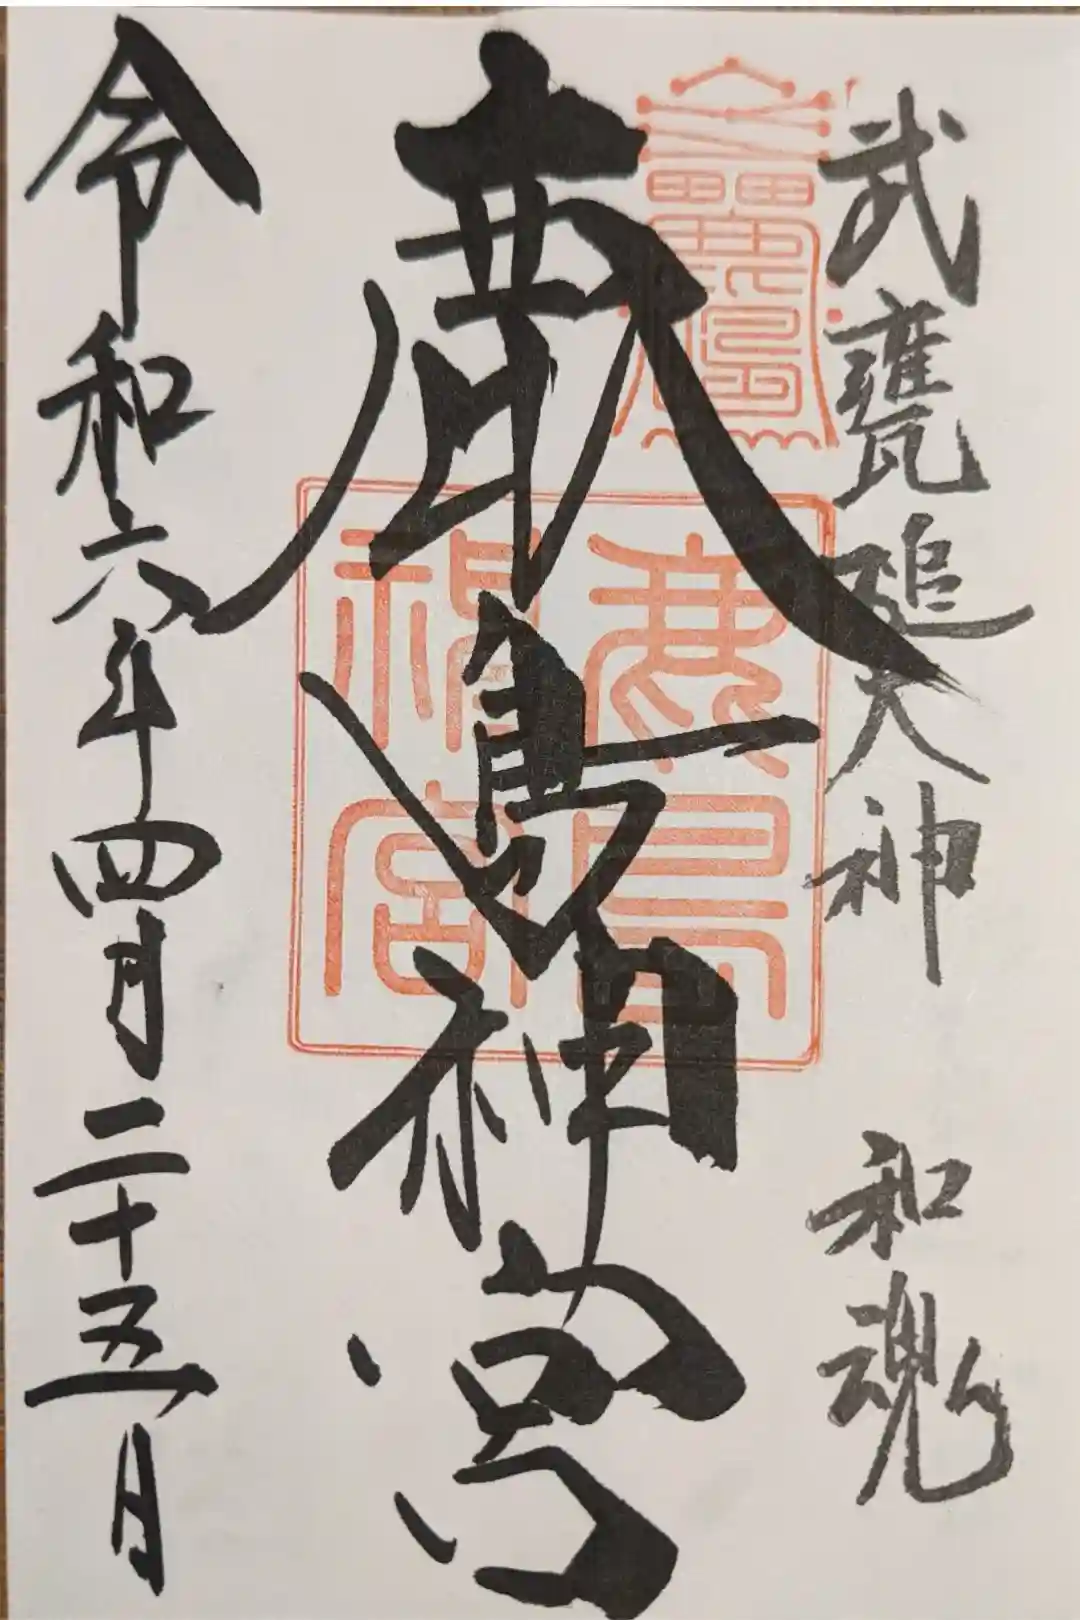 武甕槌大神 和魂
鹿島神宮
鹿島神宮
令和六年四月二十五日